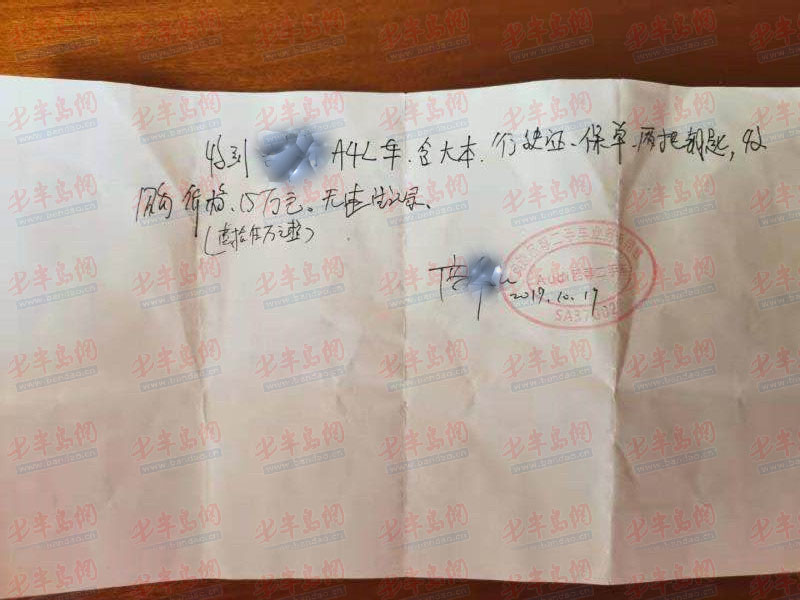 收到 A4L车、含大本、行驶证、保单、两把钥匙,收
购价格、15万元。无违章记录。
(壹拾伍万元整)
2019.10.17
二手车
SA37102
半岛网
www.bandao.cn